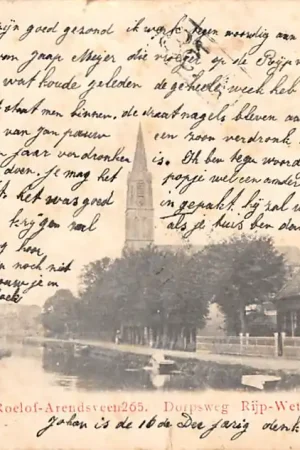 zijn goed gezond ik werk heen woordig aan
von Jaap Meijer die vroeger op de Rijp
wat koude geleden de geheele week heb
staat men binnen, de draat nagels bleven aan
van Jan pauw een zoon verdronk
en jaar verdronken is. Ik ben tegu woord
doen. je mag het popje wel een ander
ik het was goed in gepakt hij zal
krijgen zal als je thuis ben dan
hoor
en noch niet
rouw je en
Roelof-Arendsveen 265. Dorpsweg Rijp-Wet
Johan is de 16 de Dec jarig denk